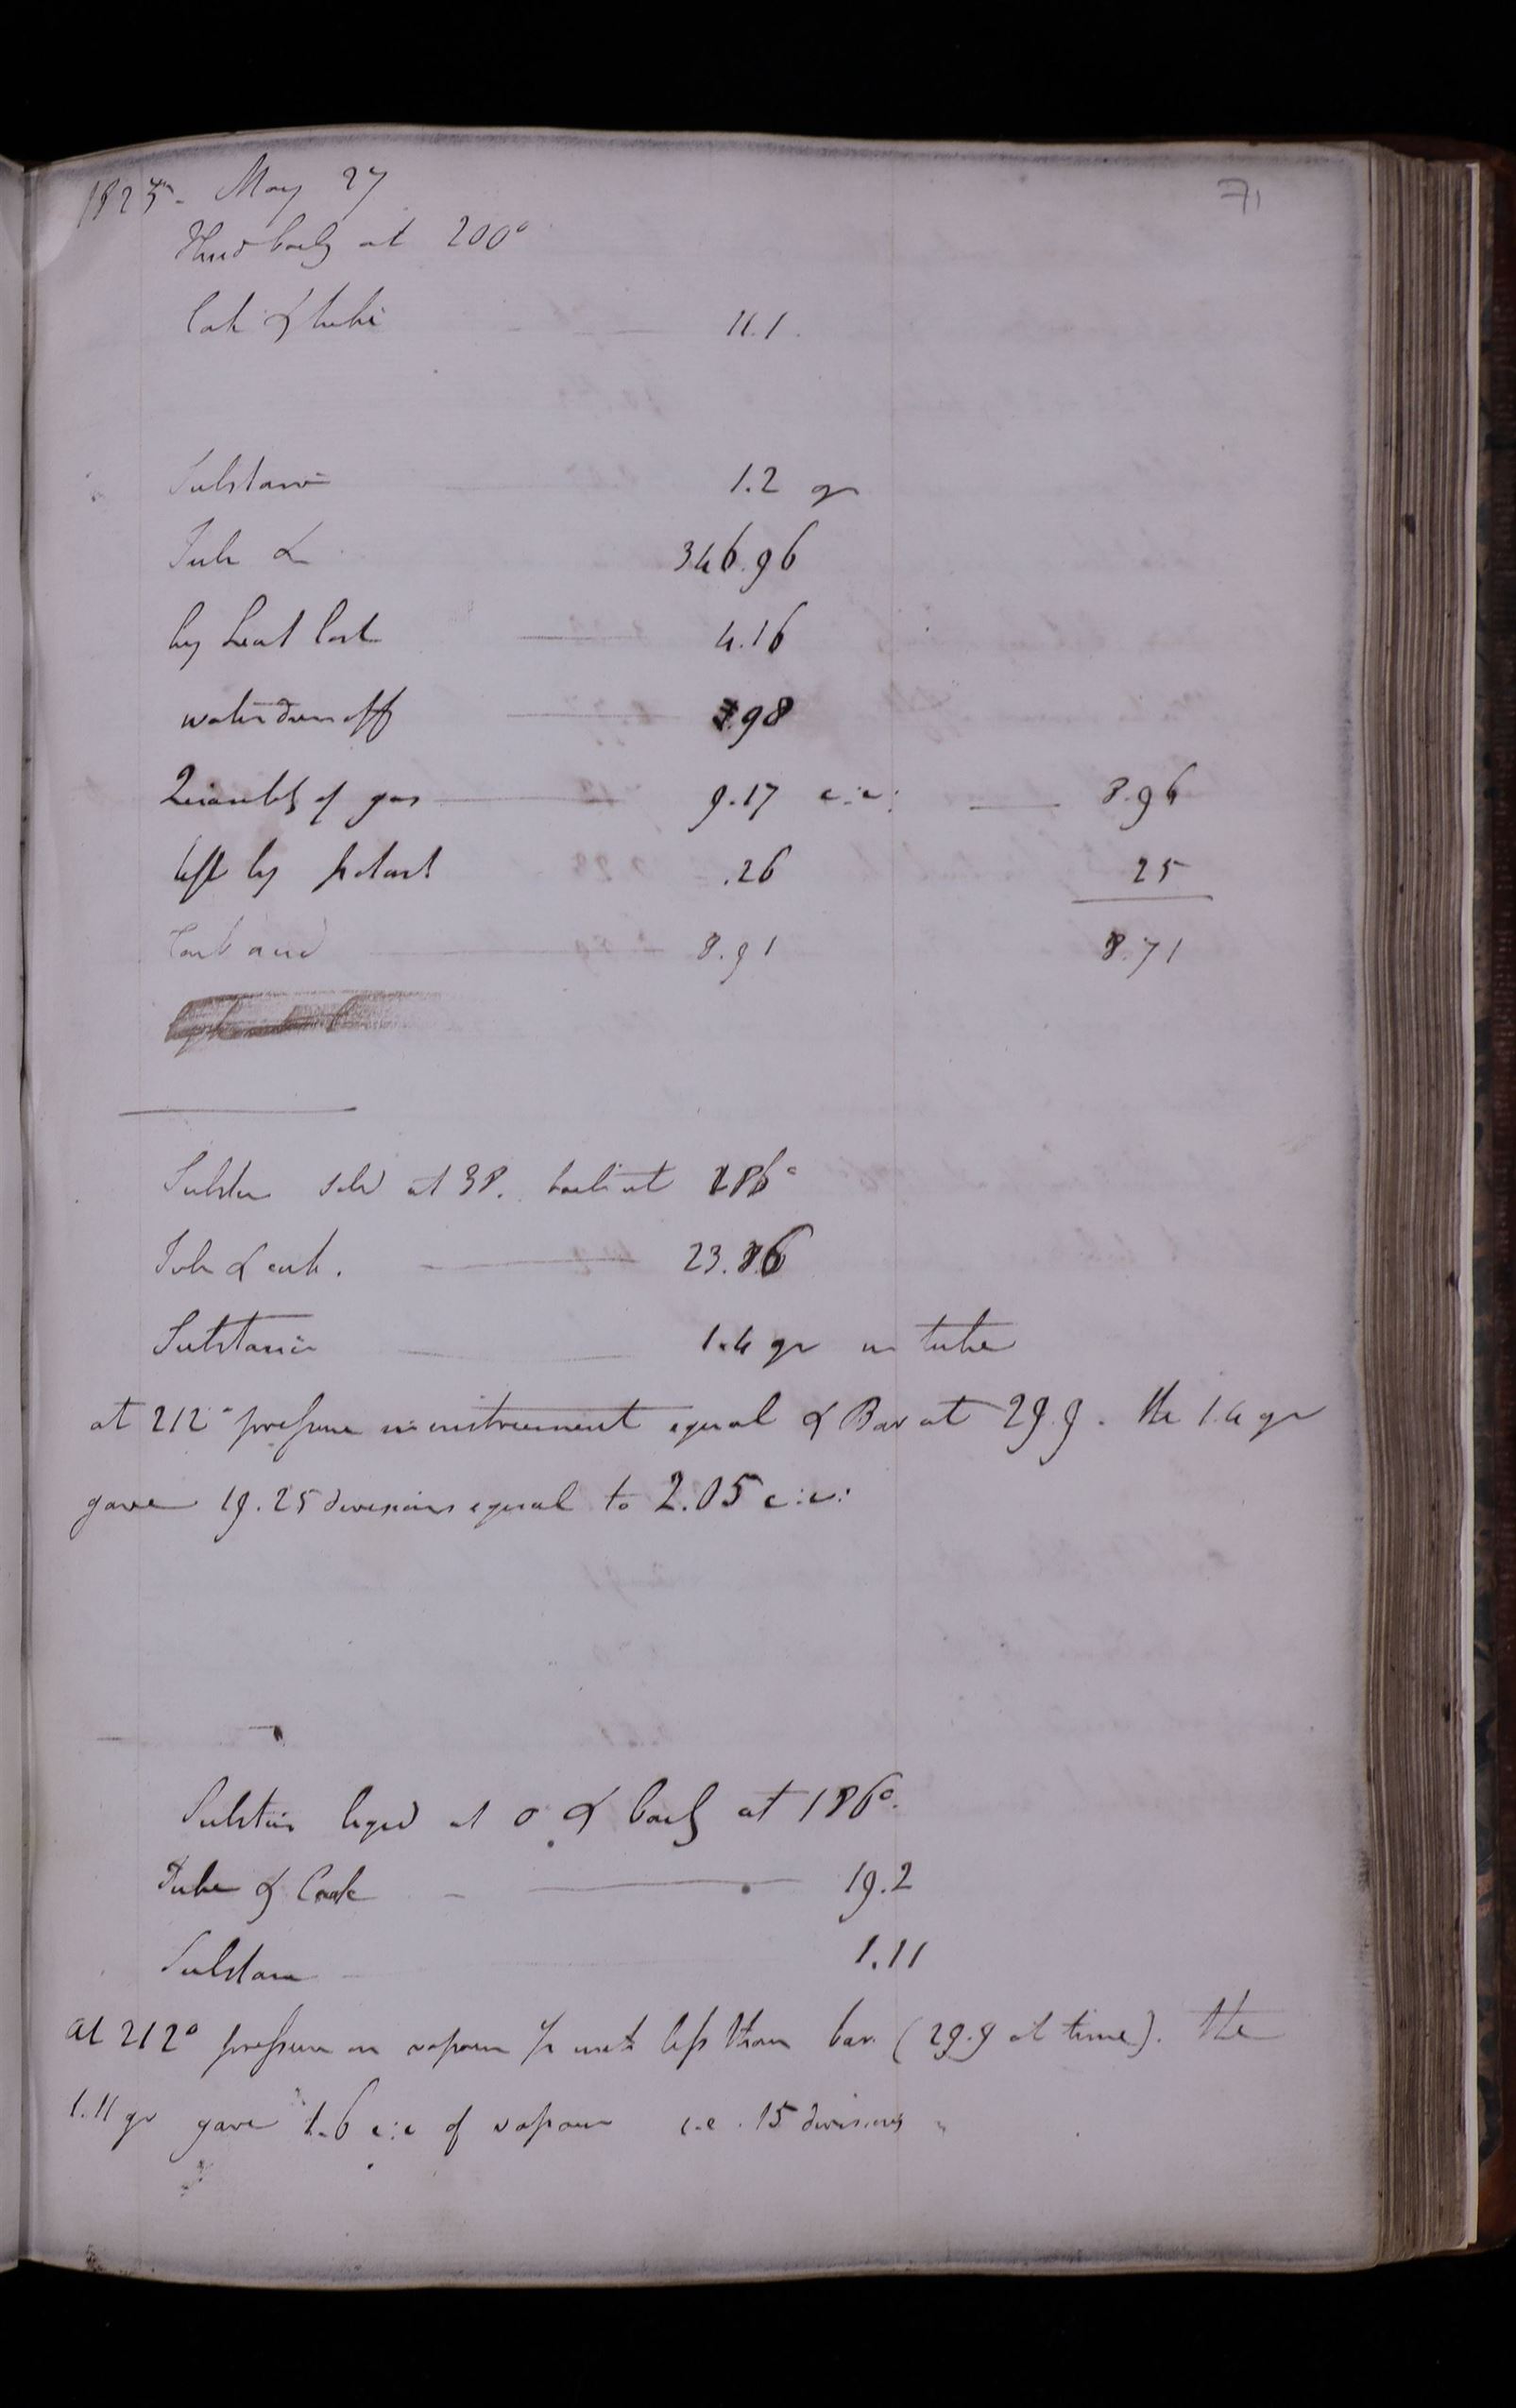 71
1825. May 27
Fluid boilg at 200°
Cork & tube 11.1.
Substance 1.2 gr
Tube & 346.96
by heat lost 4.16
water driven off .98
Quantity of gas 9.17 c:i: 8.96
left by potash .26 25
Carb acid 8.91 8.71
Substan solid at 38. boils at 186°
Tube & cork. 23.86
Substance 1.4 gr in tube
at 212° pressure in instrument equal & Bar at 29.9. the 1.4 gr
gave 19.25 divisions equal to 2.05 c:i:
Substan liquid at 0 & boilg at 186°.
Tube & Cork 19.2
Substan 1.11
at 212° pressure on vapour inch less than bar (29.9 at time). the
1.11 gr gave 1.6 c:i of vapour i.e. 15 divisions